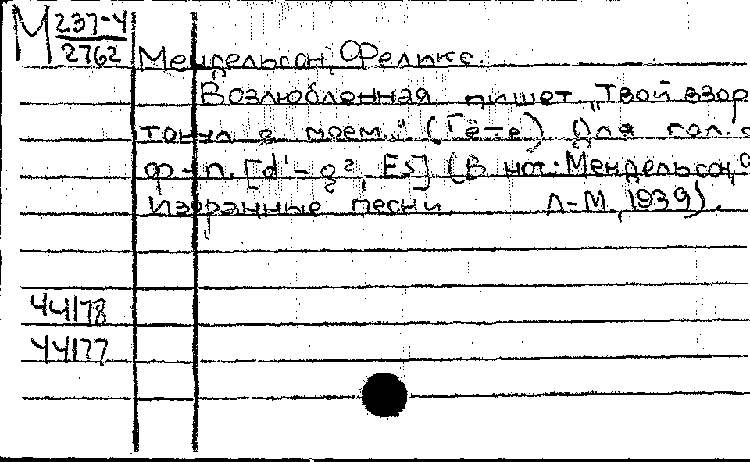 М 237-4
2762
Мендельсон, Феликс.
Возлюбленная пишет „Твой взор
тонул в моем." (Гёте) Для гол. с
ф-п. [d'-g², Es] (В нот.: Мендельсон, Ф
Избранные песни Л-М., 1939).
44178
44177